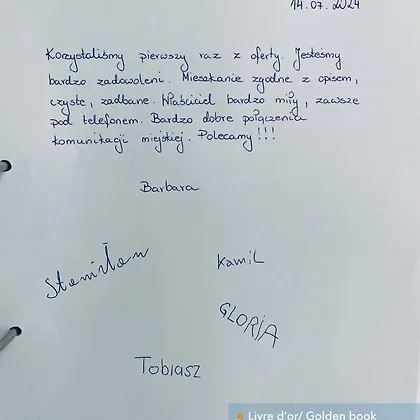 14.07.2024
Korzystaliśmy pierwszy raz z oferty. Jesteśmy
bardzo zadowoleni. Mieszkanie zgodne z opisem,
czyste, zadbane. Właściciel bardzo miły, zawsze
pod telefonem. Bardzo dobre połączenia
komunikacji miejskiej. Polecamy!!!
Barbara
Stanisław
Kamil
GLORIA
Tobiasz
» Livre d'or/ Golden book